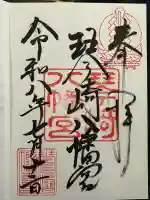 奉拝
琴崎八幡宮
令和八年七月十一日